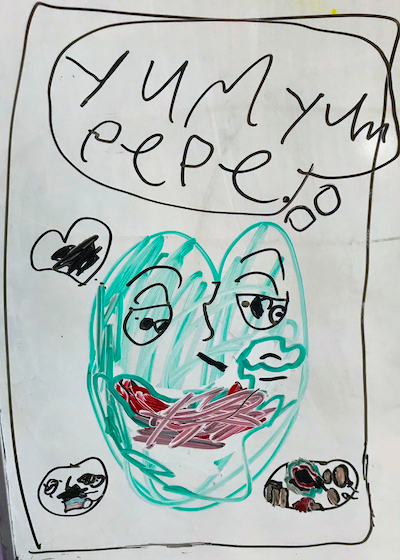 YUM YUM
PePe!